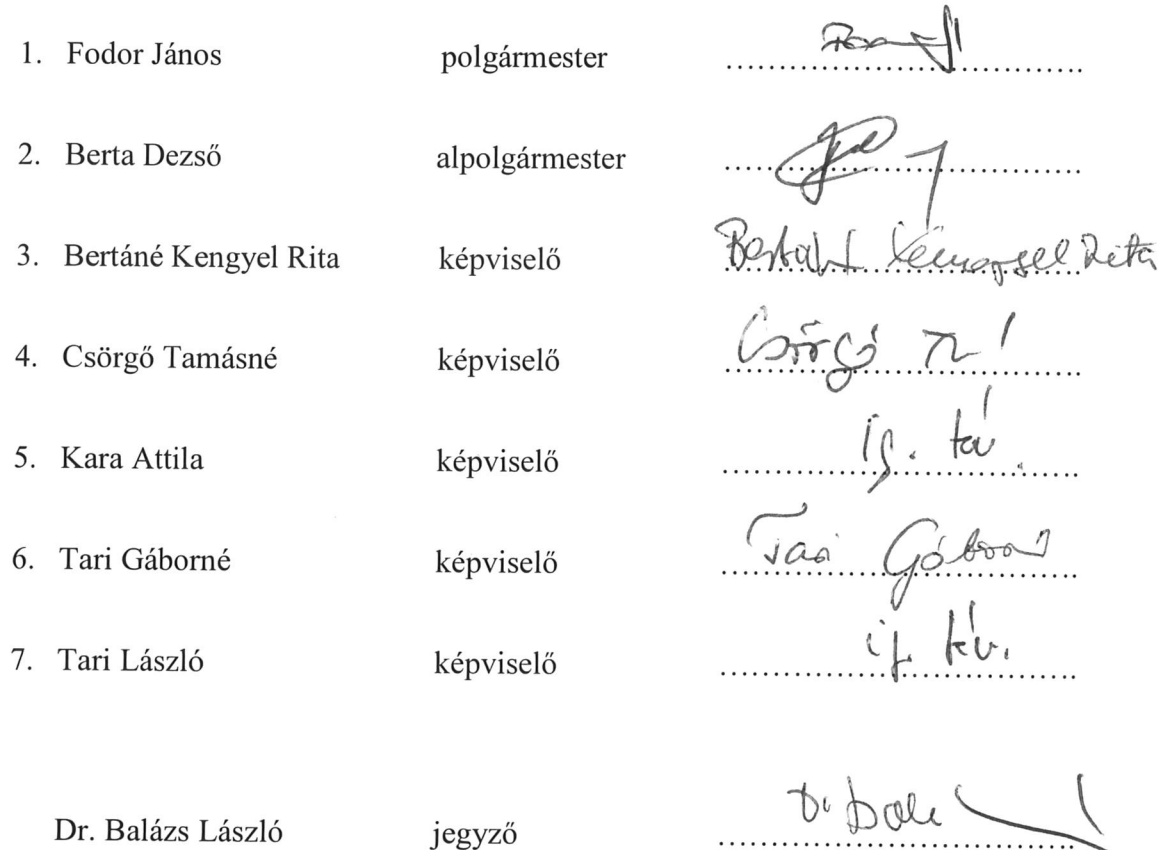 1. Fodor János polgármester ........................................
2. Berta Dezső alpolgármester ........................................
3. Bertáné Kengyel Rita képviselő Bertáné Kengyel Rita
4. Csörgő Tamásné képviselő Csörgő
5. Kara Attila képviselő ig. táv.
6. Tari Gáborné képviselő Tari Gáborné
7. Tari László képviselő ig. táv.
Dr. Balázs László jegyző Dr